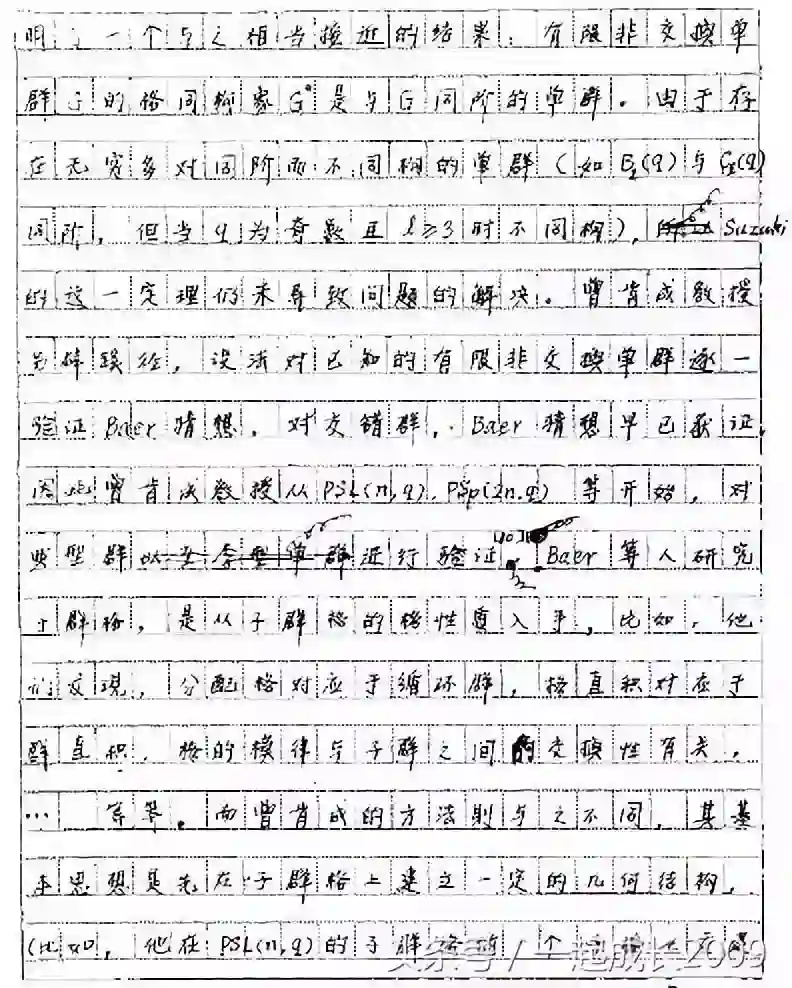 明了一个与之相当接近的结果：有限非交换单
群G的格同构象G°是与G同阶的单群。由于存
在无穷多对同阶而不同构的单群（如B₂(q)与C₂(q)
同阶，但当q为奇数且l≥3时不同构），Suzuki
的这一定理仍未导致问题的解决。曾肯成教授
另辟蹊径，设法对已知的有限非交换单群逐一
验证Baer猜想，对交错群，Baer猜想早已获证，
因此曾肯成教授从PSL(n,q)，PSp(2n,q)等开始，对
典型群进行验证。Baer等人研究
子群格，是从子群格的格性质入手，比如，他
们发现，分配格对应于循环群，格直积对应于
群直积，格的模律与子群之间的交换性有关，
… 等等。而曾肯成的方法则与之不同，其基
本思想是先在子群格上建立一定的几何结构，
（比如，他在PSL(n,q)的子群格的 个
头条号/一起成长2009